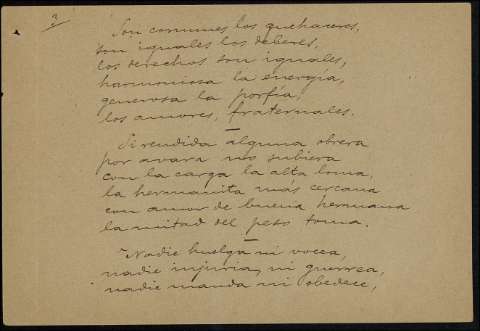 2/
Son comunes los quehaceres,
son iguales los deberes,
los derechos son iguales,
harmoniosa la energia,
generosa la porfía,
los amores, fraternales.
—
Si rendida alguna obrera
por avara no subiera
con la carga la alta loma,
la hermanita más cercana
con amor de buena hermana
la mitad del peso toma.
—
Nadie huelga ni vocea,
nadie injuria, ni guerrea,
nadie manda ni obedece,